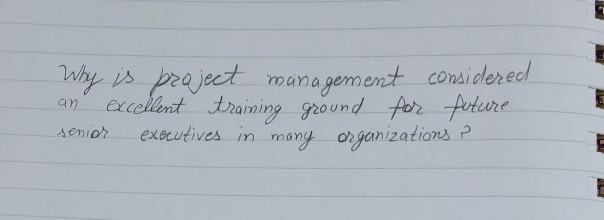 Why is project management considered
an excellent training ground for future
senior executives in many organizations?